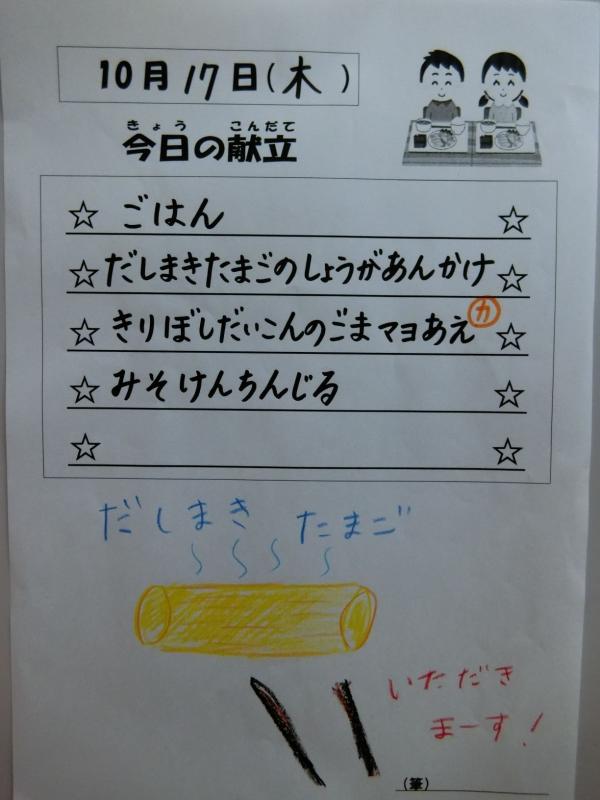 10月17日(木)
きょう こんだて
今日の献立
☆ ごはん ☆
☆ だしまきたまごのしょうがあんかけ ☆
☆ きりぼしだいこんのごまマヨあえ カ ☆
☆ みそけんちんじる ☆
☆ ☆
だしまき たまご
いただき
まーす!
(筆)